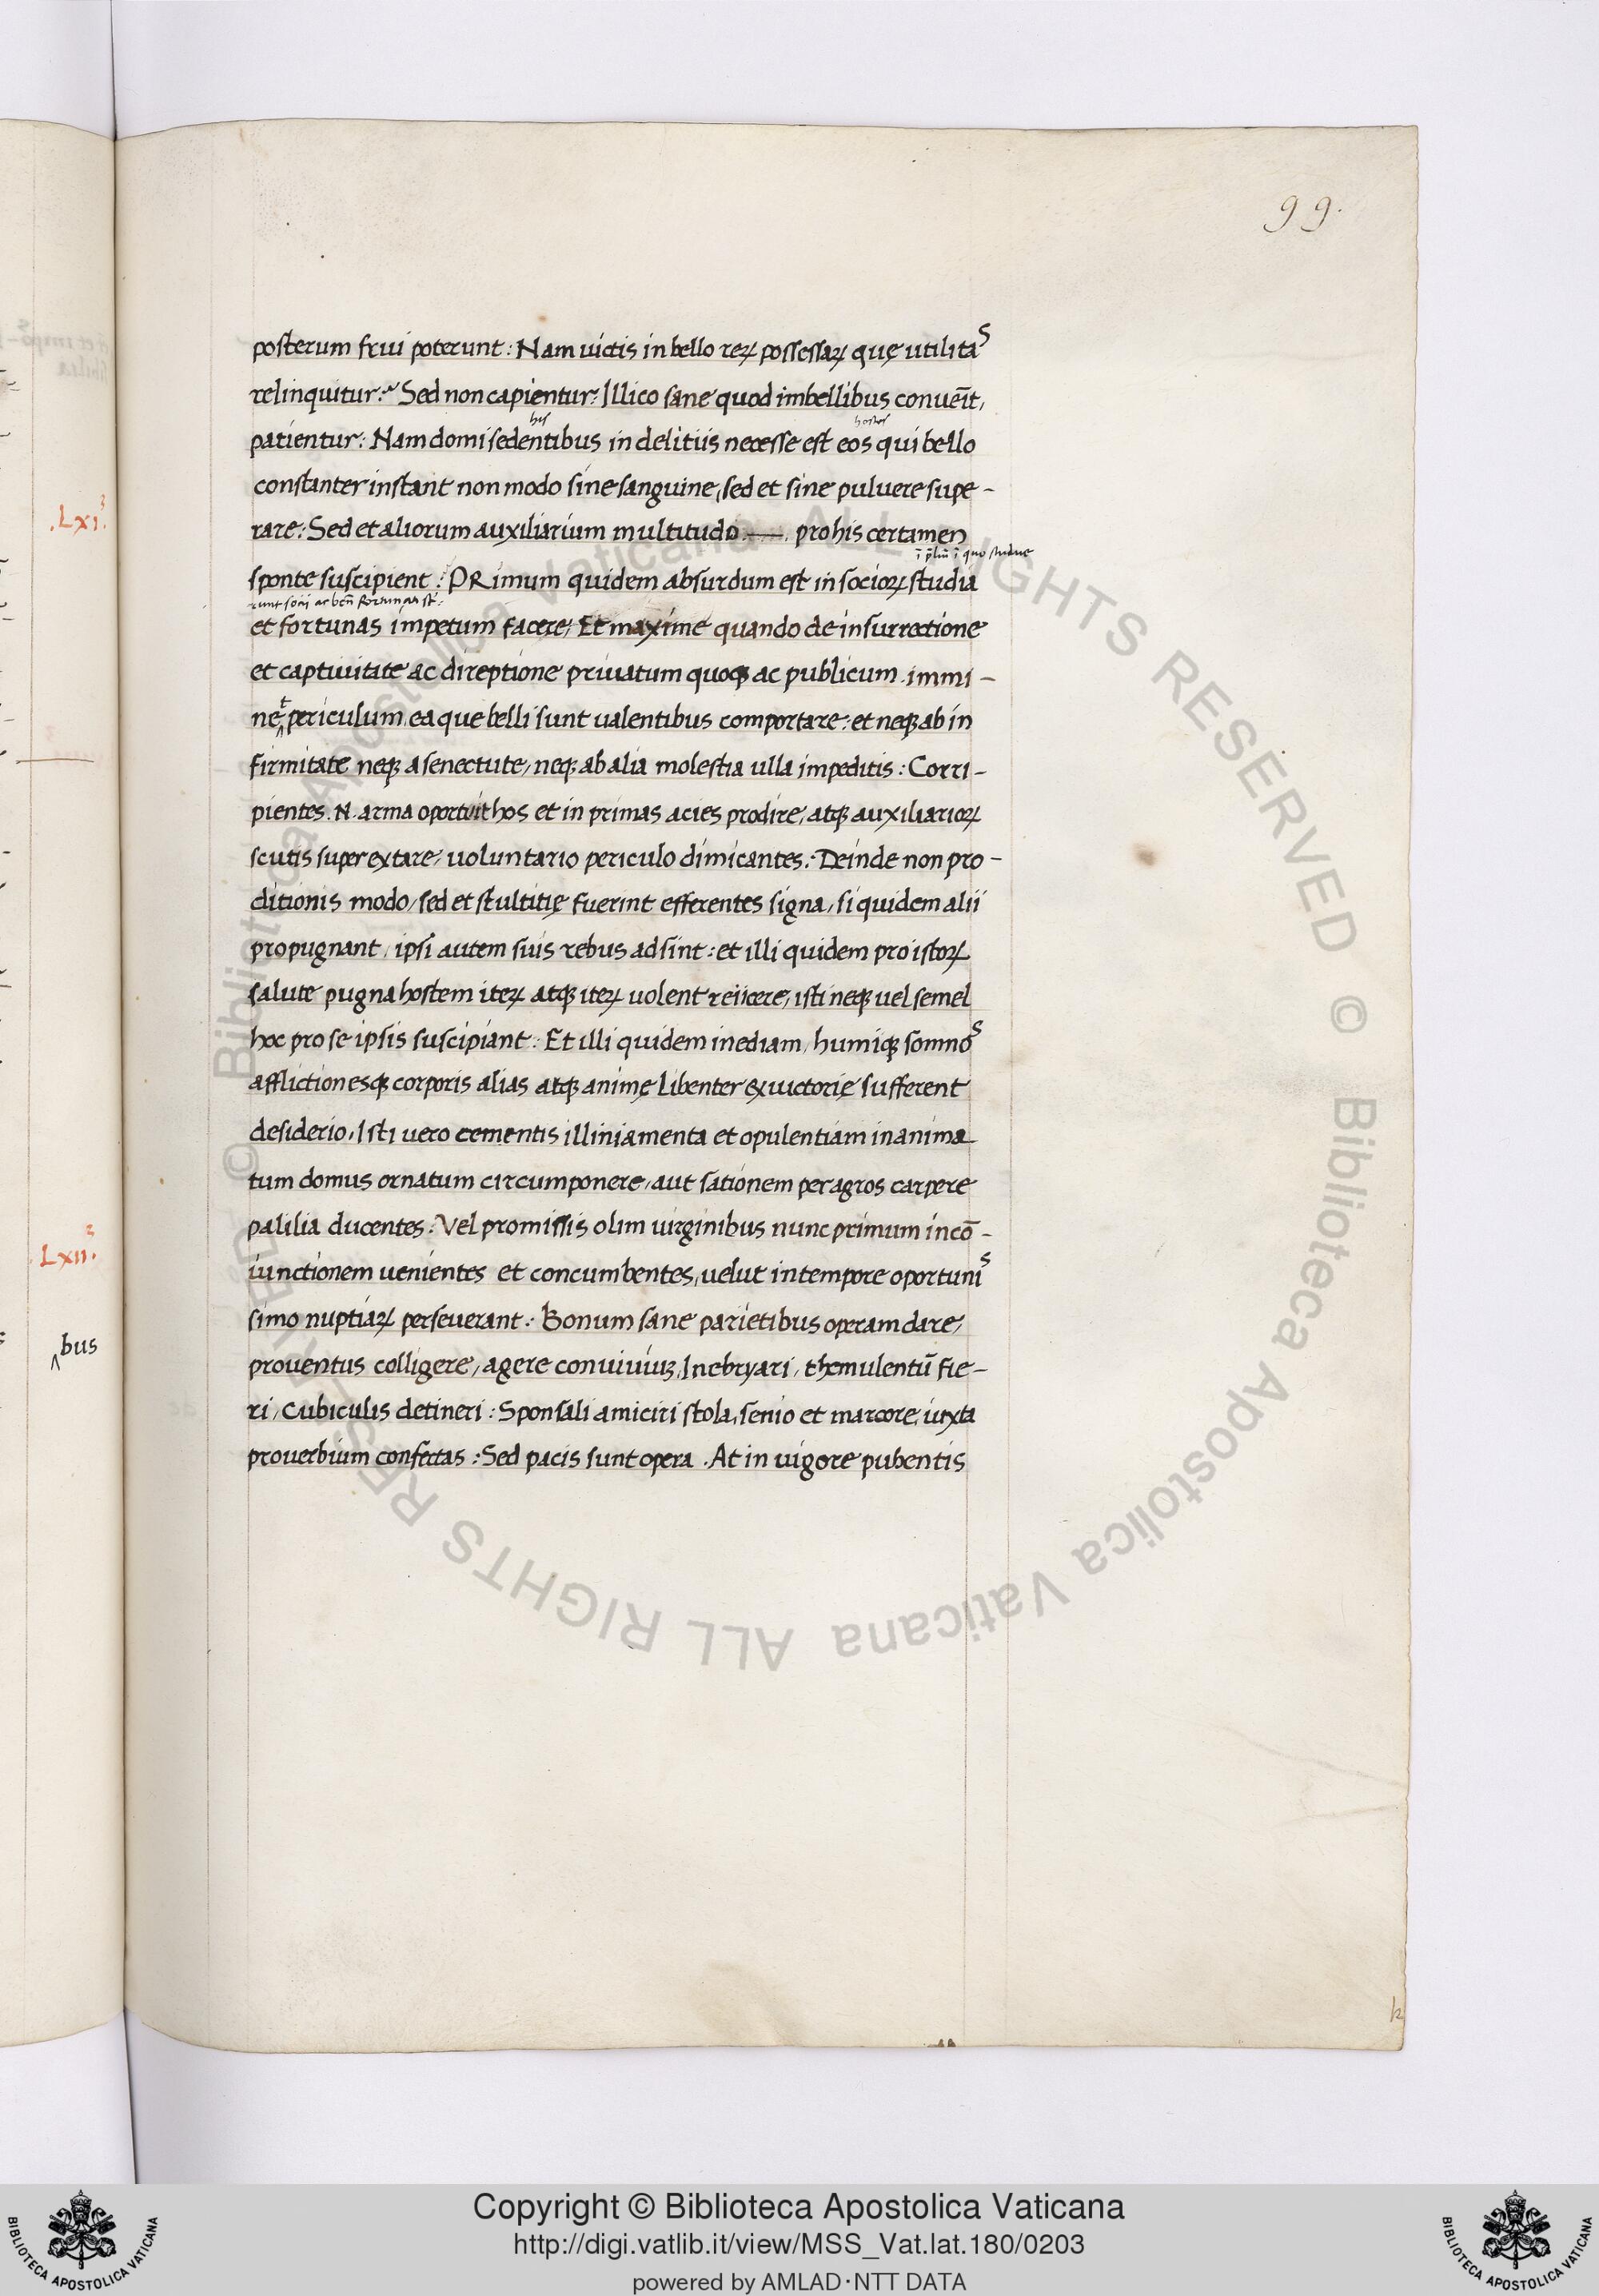 99.
posterum frui poterunt: Nam uictis in bello reꝝ possessaꝝ quę utilitaˢ
relinquitur: Sed non capientur: Illico sane quod imbellibus conuēit,
his hostes
patientur: Nam domi sedentibus in delitiis necesse est eos qui bello
constanter instant non modo sine sanguine, sed et sine puluere supe-
rare: Sed et aliorum auxiliarium multitudo — pro his certamen
ī p̄liū ī quo stadue
sponte suscipient: PRimum quidem absurdum est in socioꝝ studia
et fortunas impetum facere, Et maxime quando de insurrectione
et captiuitate ac direptione priuatum quoqꝫ ac publicum immi-
neᵗ periculum, ea que belli sunt ualentibus comportare: et neqꝫ ab in
firmitate neqꝫ a senectute, neqꝫ ab alia molestia ulla impeditis: Corri-
pientes .N. arma oportuit hos et in primas acies prodire, atqꝫ auxiliarioꝝ
scutis super extare, uoluntario periculo dimicantes: Deinde non pro-
ditionis modo, sed et stultitię fuerint efferentes signa, si quidem alii
propugnant, ipsi autem suis rebus adsint: et illi quidem pro istoꝝ
salute pugna hostem iteꝝ atqꝫ iteꝝ uolent reiicere, isti neqꝫ uel semel
hoc pro se ipsis suscipiant: Et illi quidem inediam, humiqꝫ somnoˢ
afflictionesqꝫ corporis alias atqꝫ animę libenter ex uictorię sufferent
desiderio, Isti uero cementis illiniamenta et opulentiam inanima
tum domus ornatum circumponere, aut sationem per agros carpere
palilia ducentes: Vel promissis olim uirginibus nunc primum in cō-
iunctionem uenientes et concumbentes, uelut in tempore oportuniˢ
simo nuptiaꝝ perseuerant: Bonum sane parietibus operam dare,
prouentus colligere, agere conuiuiuꝫ, Inebryari, themulentū fie-
ri, Cubiculis detineri: Sponsali amiciri stola, senio et marcore, iuxta
prouerbium confectas: Sed pacis sunt opera. At in uigore pubentis
.LXI.
LXII.
bus
Copyright © Biblioteca Apostolica Vaticana
http://digi.vatlib.it/view/MSS_Vat.lat.180/0203
powered by AMLAD·NTT DATA
BIBLIOTECA APOSTOLICA VATICANA
BIBLIOTECA APOSTOLICA VATICANA
© Biblioteca Apostolica Vaticana ALL RIGHTS RESERVED © Biblioteca Apostolica Vaticana ALL RIGHTS RESERVED